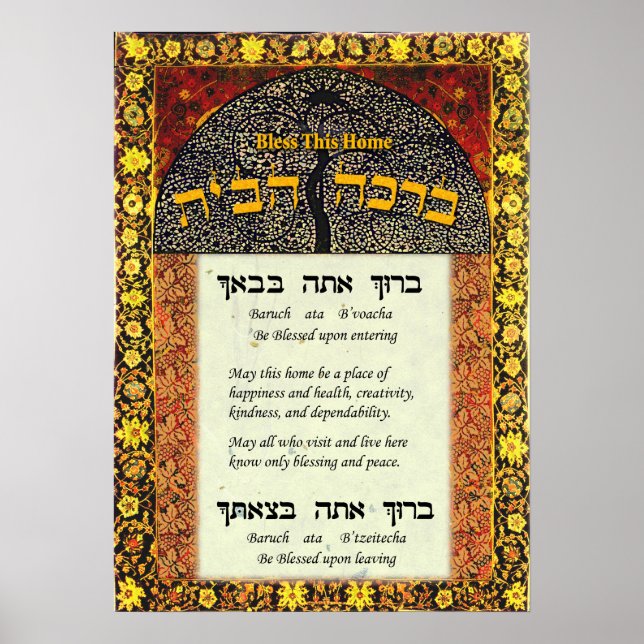 Bless This Home
ברכה הבית
ברוּךְ אתה בּבאךְ
Baruch ata B'voacha
Be Blessed upon entering
May this home be a place of
happiness and health, creativity,
kindness, and dependability.
May all who visit and live here
know only blessing and peace.
ברוּךְ אתה בּצאתךְ
Baruch ata B'tzeitecha
Be Blessed upon leaving